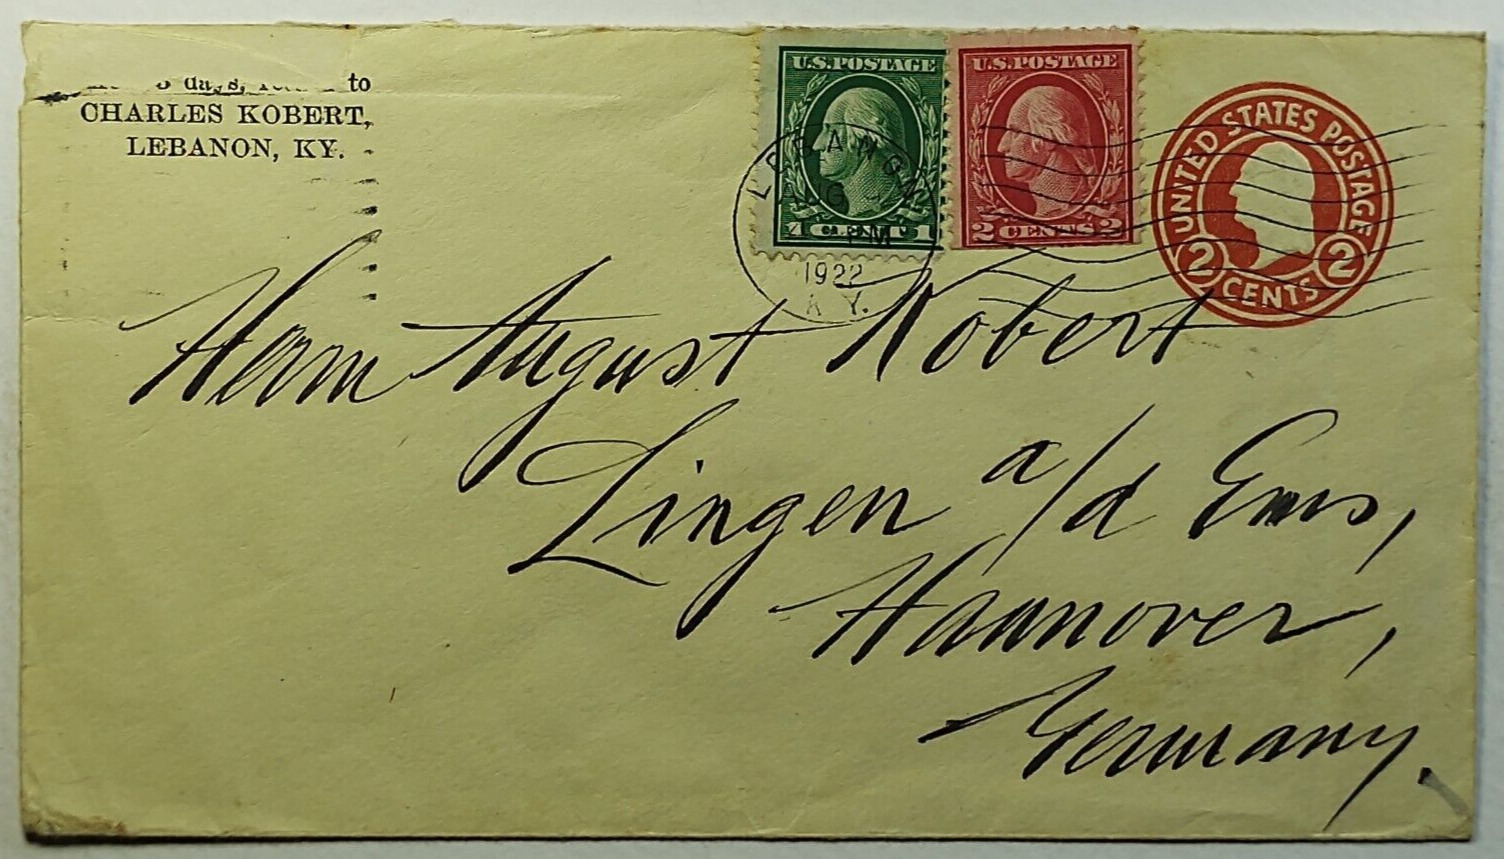 days, to
CHARLES KOBERT,
LEBANON, KY.
U.S. POSTAGE
1 1
U.S. POSTAGE
2 CENTS 2
UNITED STATES POSTAGE
2 CENTS 2
LEBANON
PM
1922
KY.
Herrn August Kobert
Lingen a/d Ems,
Hannover,
Germany.